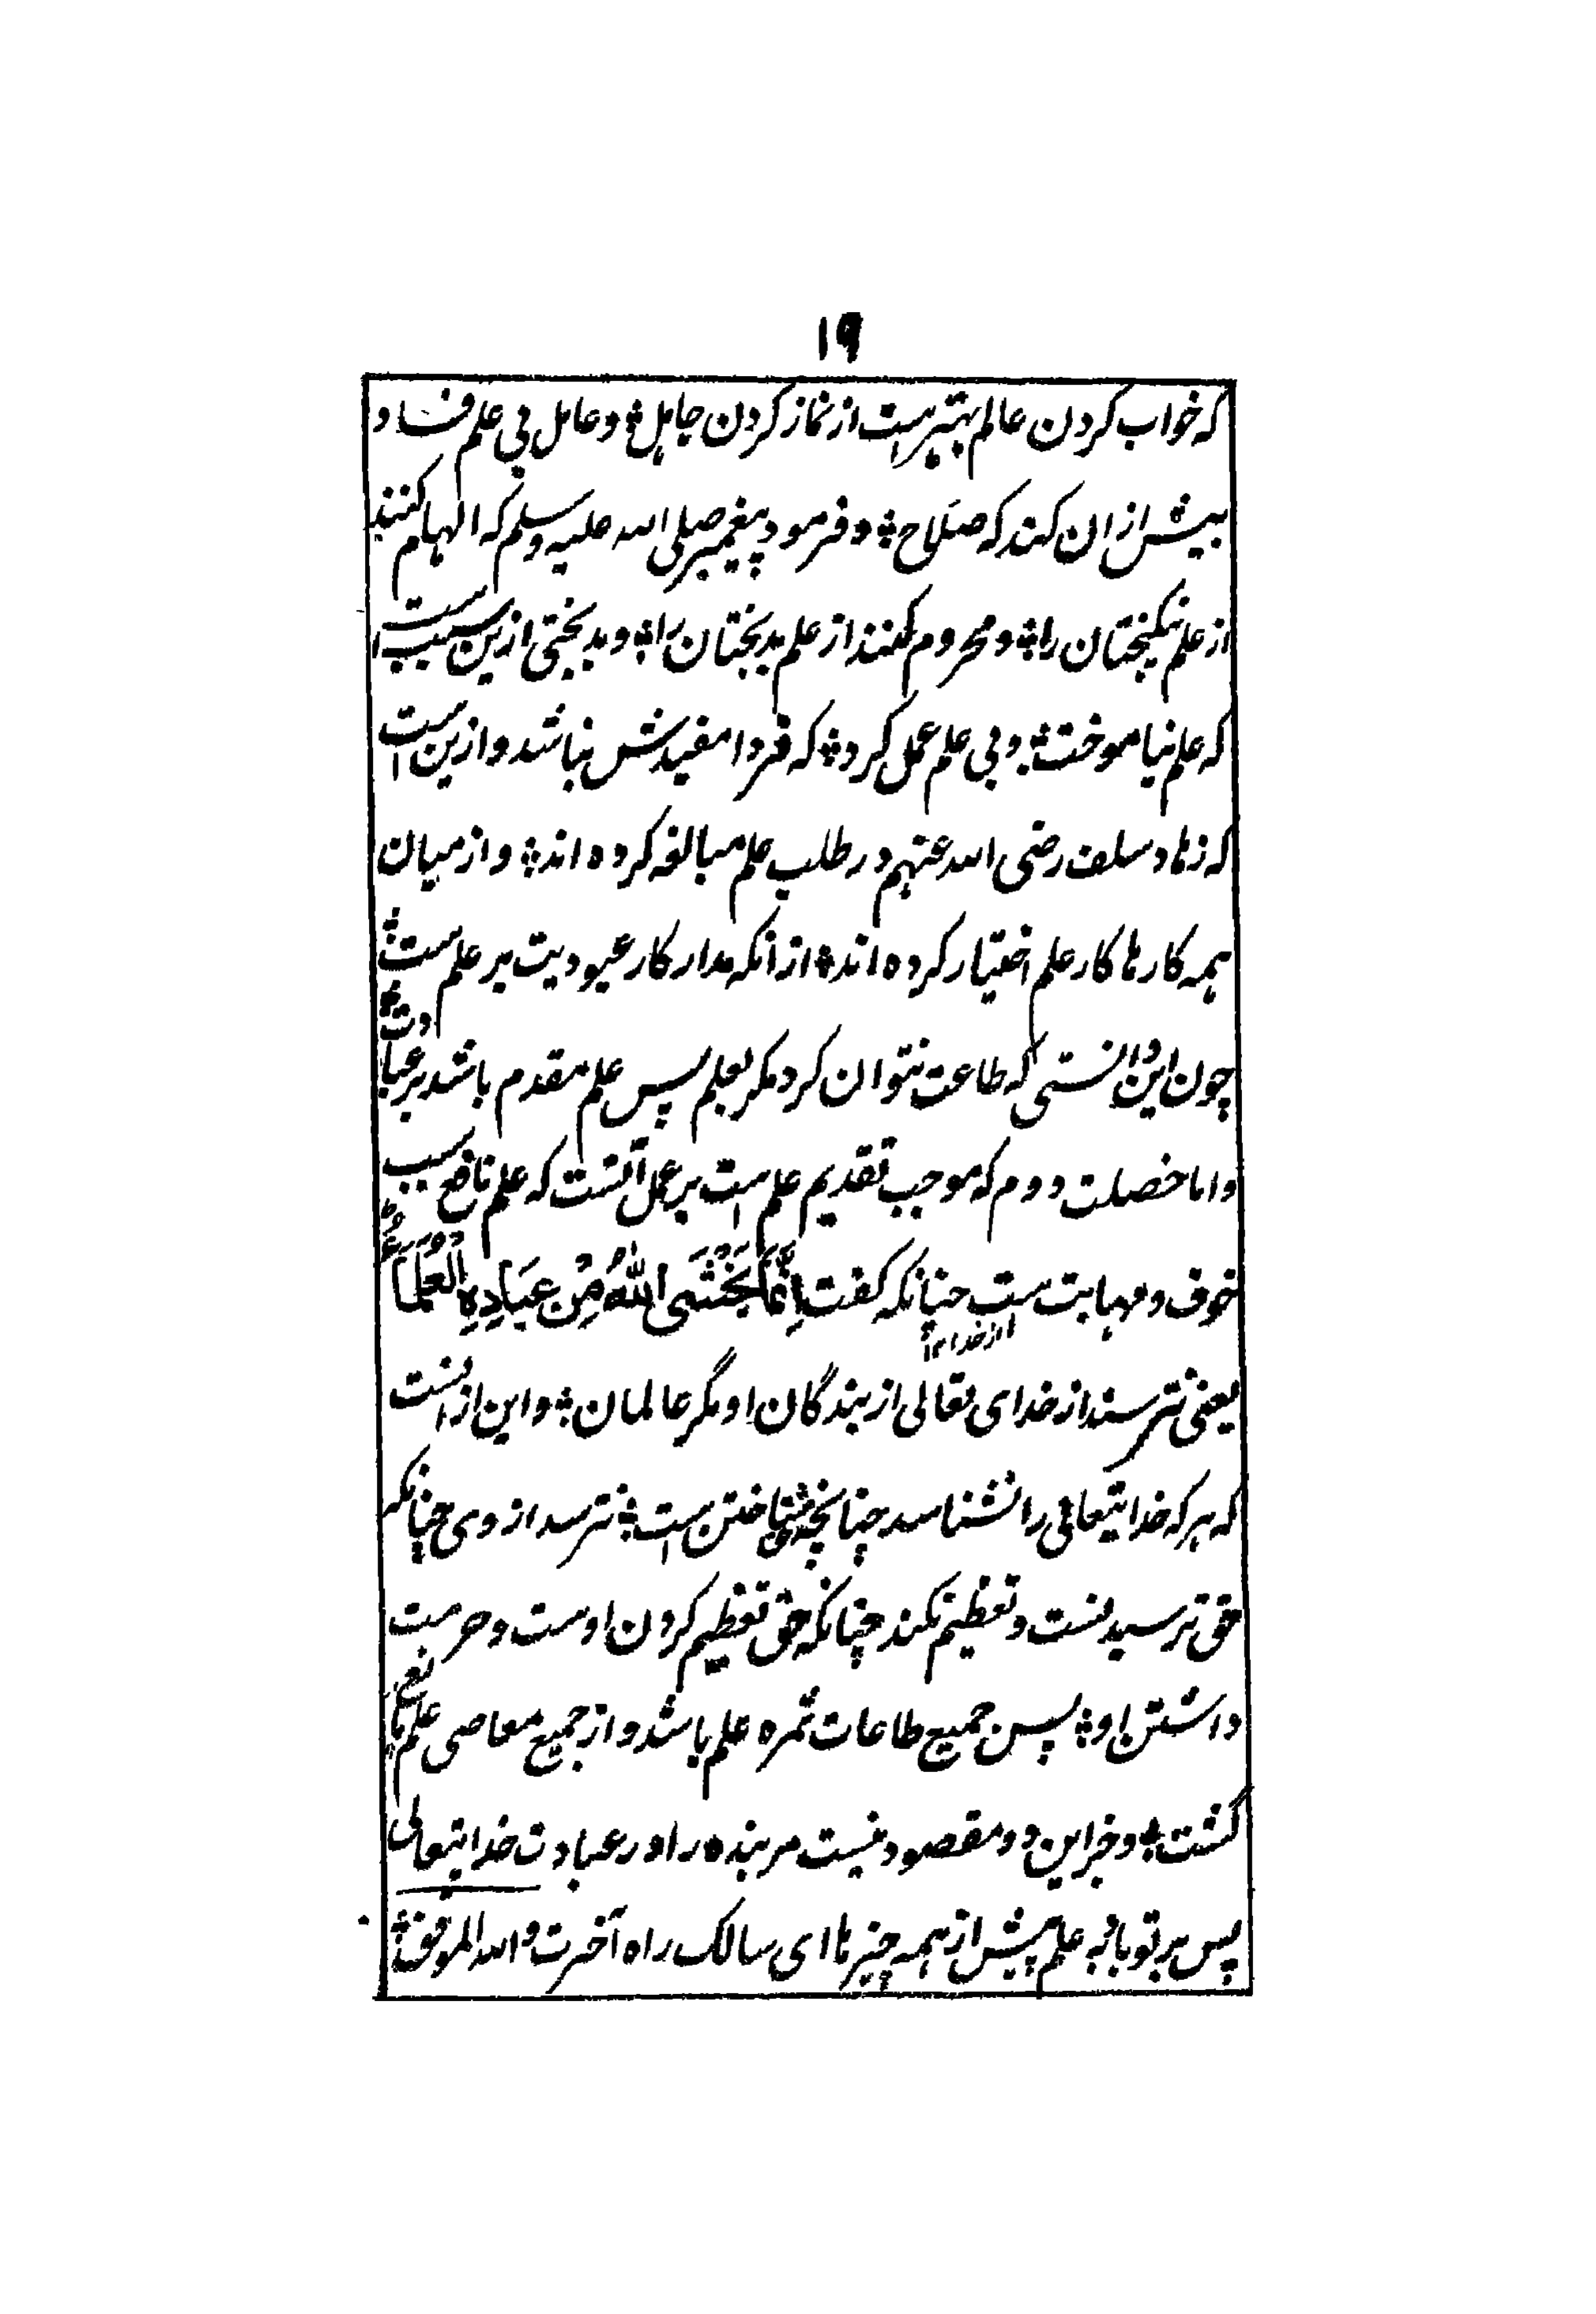 ۱۹
که خواب کردن عالم بهتر است از نماز کردن جاهل؛ و عامل بی علم فساد
بیش از ان کند که صلاح؛ و فرمود پیغمبر صلی الله علیه وسلم که الهام کنند
از علم نیکبختان را؛ و محروم کنند از علم بدبختان را؛ و بدبختی ازین سبب است
که علم نیاموخت؛ و بی علم عمل کرد؛ که فردا مفیدش نباشد و ازین است
که زهاد سلف رضی الله عنهم در طلب علم مبالغه کرده اند؛ و از میان
همه کارها کار علم اختیار کرده اند؛ از انکه مدار کار عبودیت بر علم ست؛
چون این دانستی که طاعت نتوان کرد مکر بعلم پس علم مقدم باشد بر عبادت؛
و اما خصلت دوم که موجب تقدیم علم است بر عمل آنست که علم نافع سبب
خوف و مهابت ست چنانکه کفت اِنَّمَا یَخْشَی اللّٰهَ مِنْ عِبَادِهِ الْعُلَمَاءُ
یعنی نترسند از خدای تعالی از بندگان او مگر عالمان؛ و این از انست
که هر که خدایتعالی را نشناسد چنانچه شناختن است؛ نترسد از وی چنانکه
حق ترسیدنست و تعظیم نکند چنانکه حق تعظیم کردن اوست و حرمت
داشتن او؛ پس جمیع طاعات ثمره علم باشد و از جمیع معاصی علم مانع
گشت؛ و جز این دو مقصود نیست مر بنده را در عبادت خدایتعالی
پس بر تو باد به علم پیش از همه چیزها ای سالک راه آخرت والله الموفق؛